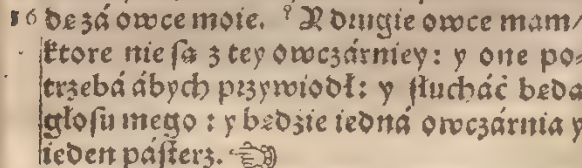 16 dezá owce moie. ⁹ Y drugie owce mam/
ktore nie ſa z tey owczárniey: y one po⸗
trzebá ábych przywiodł: y ſłucháć beda
głoſu mego : y będzie iedná owczárnia y
ieden páſterz. ☜